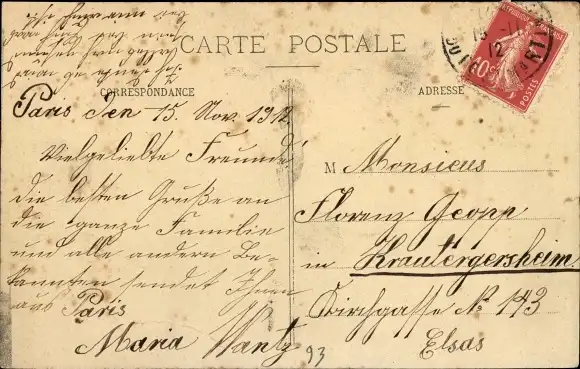 CARTE POSTALE
CORRESPONDANCE
ADRESSE
RÉPUBLIQUE FRANÇAISE
10c
POSTES
Paris Den 15. Nov. 1912
Vielgeliebte Freunde
die besten Gruße an
die ganze Familie
und alle andern Be-
kannten sendet Ihnen
aus Paris
Maria Wantz
93
M Monsieus
Florenz Gropp
in Krautergersheim
Kirchgasse No 143
Elsas